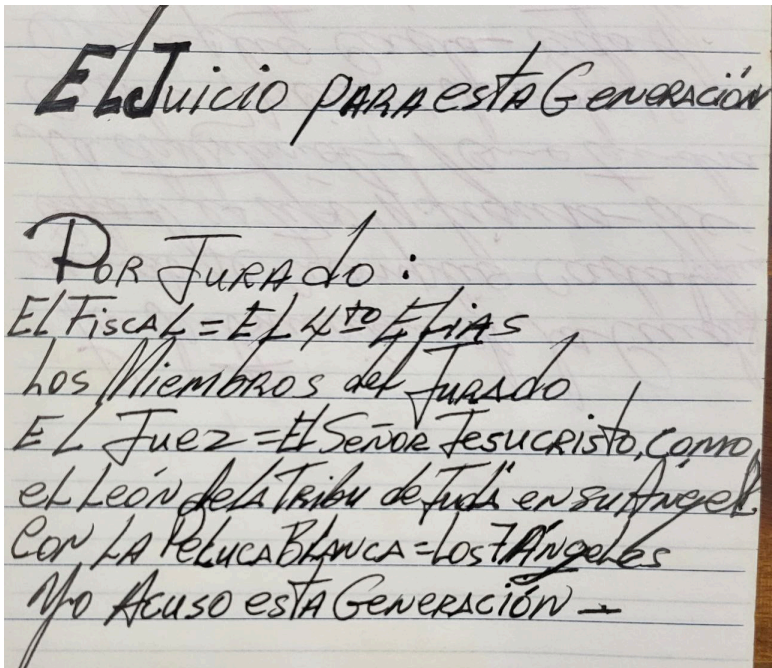 El Juicio para esta Generación
Por Jurado:
El Fiscal = El 4to Elias
Los Miembros del Jurado
El Juez = El Señor Jesucristo, como
el León de la Tribu de Judá en su Ángel.
Con la Peluca Blanca = Los 7 Ángeles
Yo Acuso esta Generación -